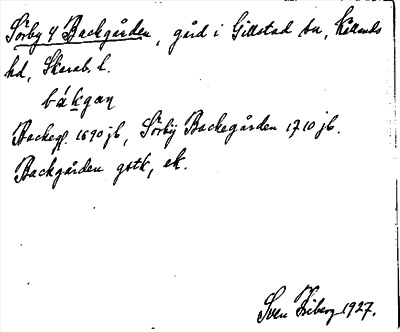 Sörby 4 Backgården, gård i Gillstad sn, Kållands
hd, Skarab. l.
bákgaɳ
Backeg. 1690 jb, Sörbÿ Backegården 1710 jb.
Backgården gstk, ek.
Sven Friberg 1927.